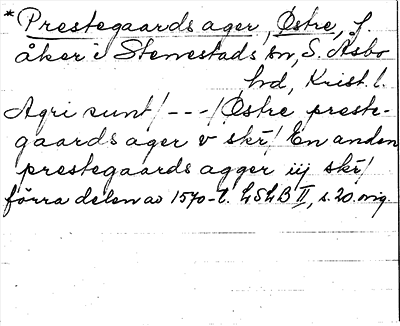 * Prestegaards ager, Østre, f
åker i Stenestads sn, S. Åsbo
hd, Krist. l.
Agri sunt/ - - - /Østre preste-
gaards ager v skr̄/ En anden
prestegaards agger iij skr̄/
förra delen av 1570-t. LSLB II, s. 20. orig.